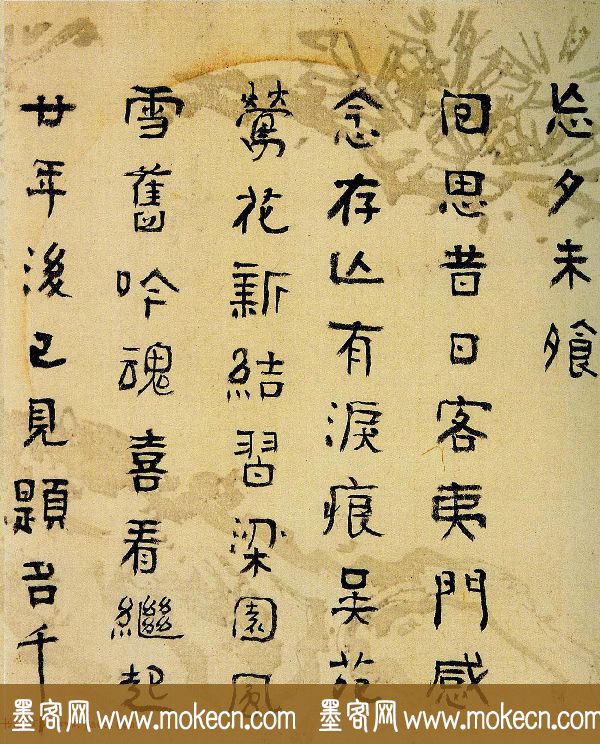 忘夕未飱
回思昔日客夷門感
念存亾有淚痕吴苑
鶯花新結習梁園風
雪舊吟魂喜看繼起
廿年後已見題名千
墨客网 www.mokecn.com 墨客网 www.mokecn.com